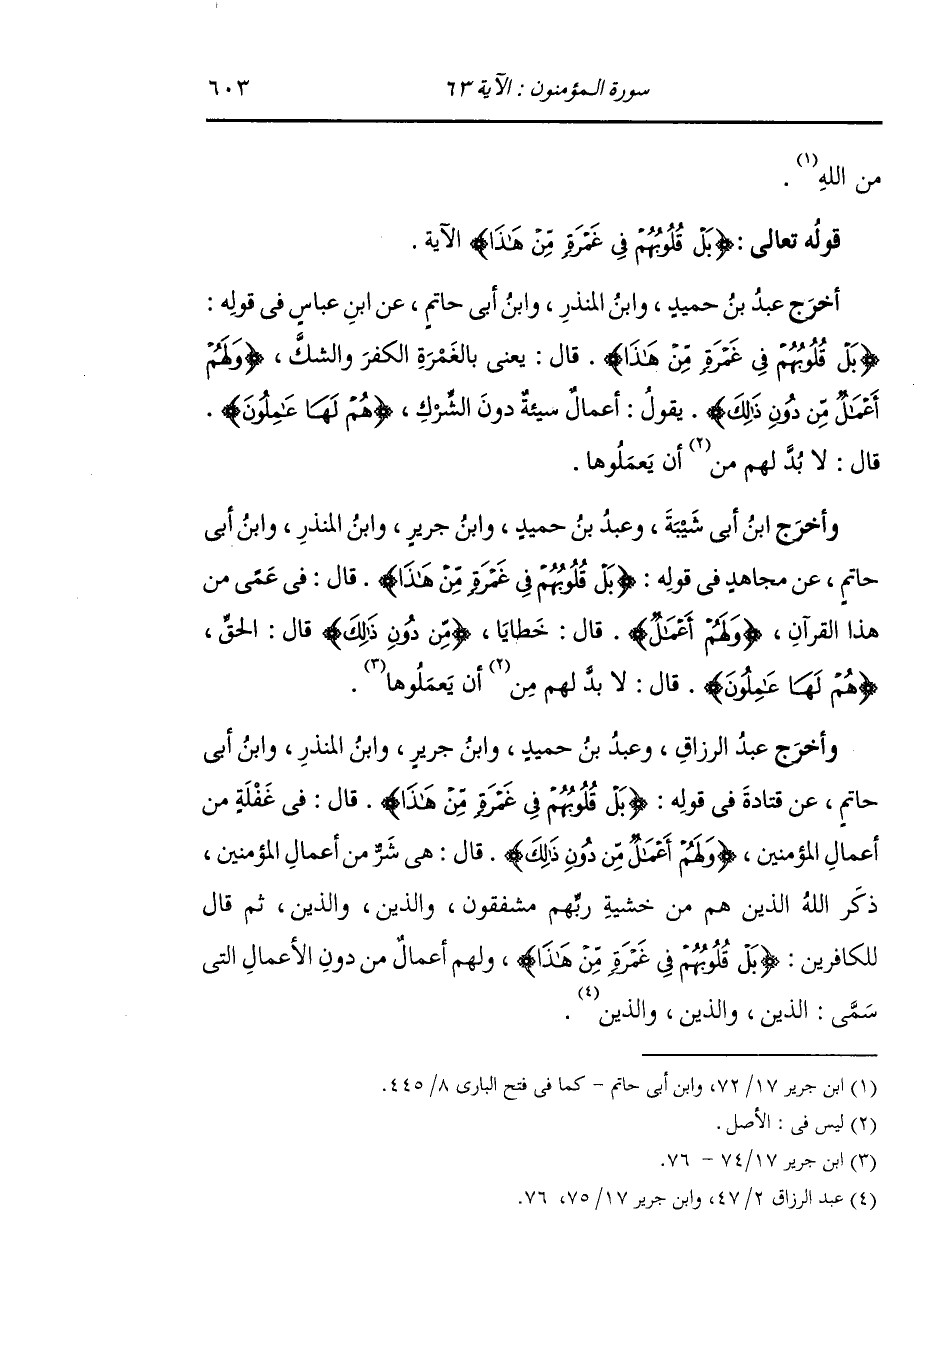 سورة المؤمنون : الآية ٦٣ ٦٠٣
من اللهِ(١) .
قولُه تعالى : ﴿بَلْ قُلُوبُهُمْ فِي غَمْرَةٍ مِّنْ هَٰذَا﴾ الآية .
أخرَج عبدُ بنُ حميدٍ ، وابنُ المنذرِ ، وابنُ أبى حاتمٍ ، عن ابنِ عباسٍ فى قولِه :
﴿بَلْ قُلُوبُهُمْ فِي غَمْرَةٍ مِّنْ هَٰذَا﴾ . قال : يعنى بالغَمْرَةِ الكفرَ والشكَّ ، ﴿وَلَهُمْ
أَعْمَٰلٌ مِّن دُونِ ذَٰلِكَ﴾ . يقولُ : أعمالٌ سيئةٌ دونَ الشِّركِ ، ﴿هُمْ لَهَا عَٰمِلُونَ﴾ .
قال : لا بُدَّ لهم من(٢) أن يَعمَلُوها .
وأخرَج ابنُ أبى شَيْبَةَ ، وعبدُ بنُ حميدٍ ، وابنُ جريرٍ ، وابنُ المنذرِ ، وابنُ أبى
حاتمٍ ، عن مجاهدٍ فى قولِه : ﴿بَلْ قُلُوبُهُمْ فِي غَمْرَةٍ مِّنْ هَٰذَا﴾ . قال : فى عَمًى من
هذا القرآنِ ، ﴿وَلَهُمْ أَعْمَٰلٌ﴾ . قال : خَطايَا ، ﴿مِّن دُونِ ذَٰلِكَ﴾ قال : الحقِّ ،
﴿هُمْ لَهَا عَٰمِلُونَ﴾ . قال : لا بدَّ لهم مِن(٢) أن يَعمَلُوها(٣) .
وأخرَج عبدُ الرزاقِ ، وعبدُ بنُ حميدٍ ، وابنُ جريرٍ ، وابنُ المنذرِ ، وابنُ أبى
حاتمٍ ، عن قتادةَ فى قولِه : ﴿بَلْ قُلُوبُهُمْ فِي غَمْرَةٍ مِّنْ هَٰذَا﴾ . قال : فى غَفْلَةٍ من
أعمالِ المؤمنين ، ﴿وَلَهُمْ أَعْمَٰلٌ مِّن دُونِ ذَٰلِكَ﴾ . قال : هى شَرٌّ من أعمالِ المؤمنين ،
ذكَر اللهُ الذين هم من خشيةِ ربِّهم مشفقون ، والذين ، والذين ، ثم قال
للكافرين : ﴿بَلْ قُلُوبُهُمْ فِي غَمْرَةٍ مِّنْ هَٰذَا﴾ ، ولهم أعمالٌ من دونِ الأعمالِ التى
سَمَّى : الذين ، والذين ، والذين(٤) .
(١) ابن جرير ١٧/ ٧٢، وابن أبى حاتم - كما فى فتح البارى ٨/ ٤٤٥.
(٢) ليس فى : الأصل .
(٣) ابن جرير ١٧/ ٧٤ - ٧٦.
(٤) عبد الرزاق ٢/ ٤٧، وابن جرير ١٧/ ٧٥، ٧٦.